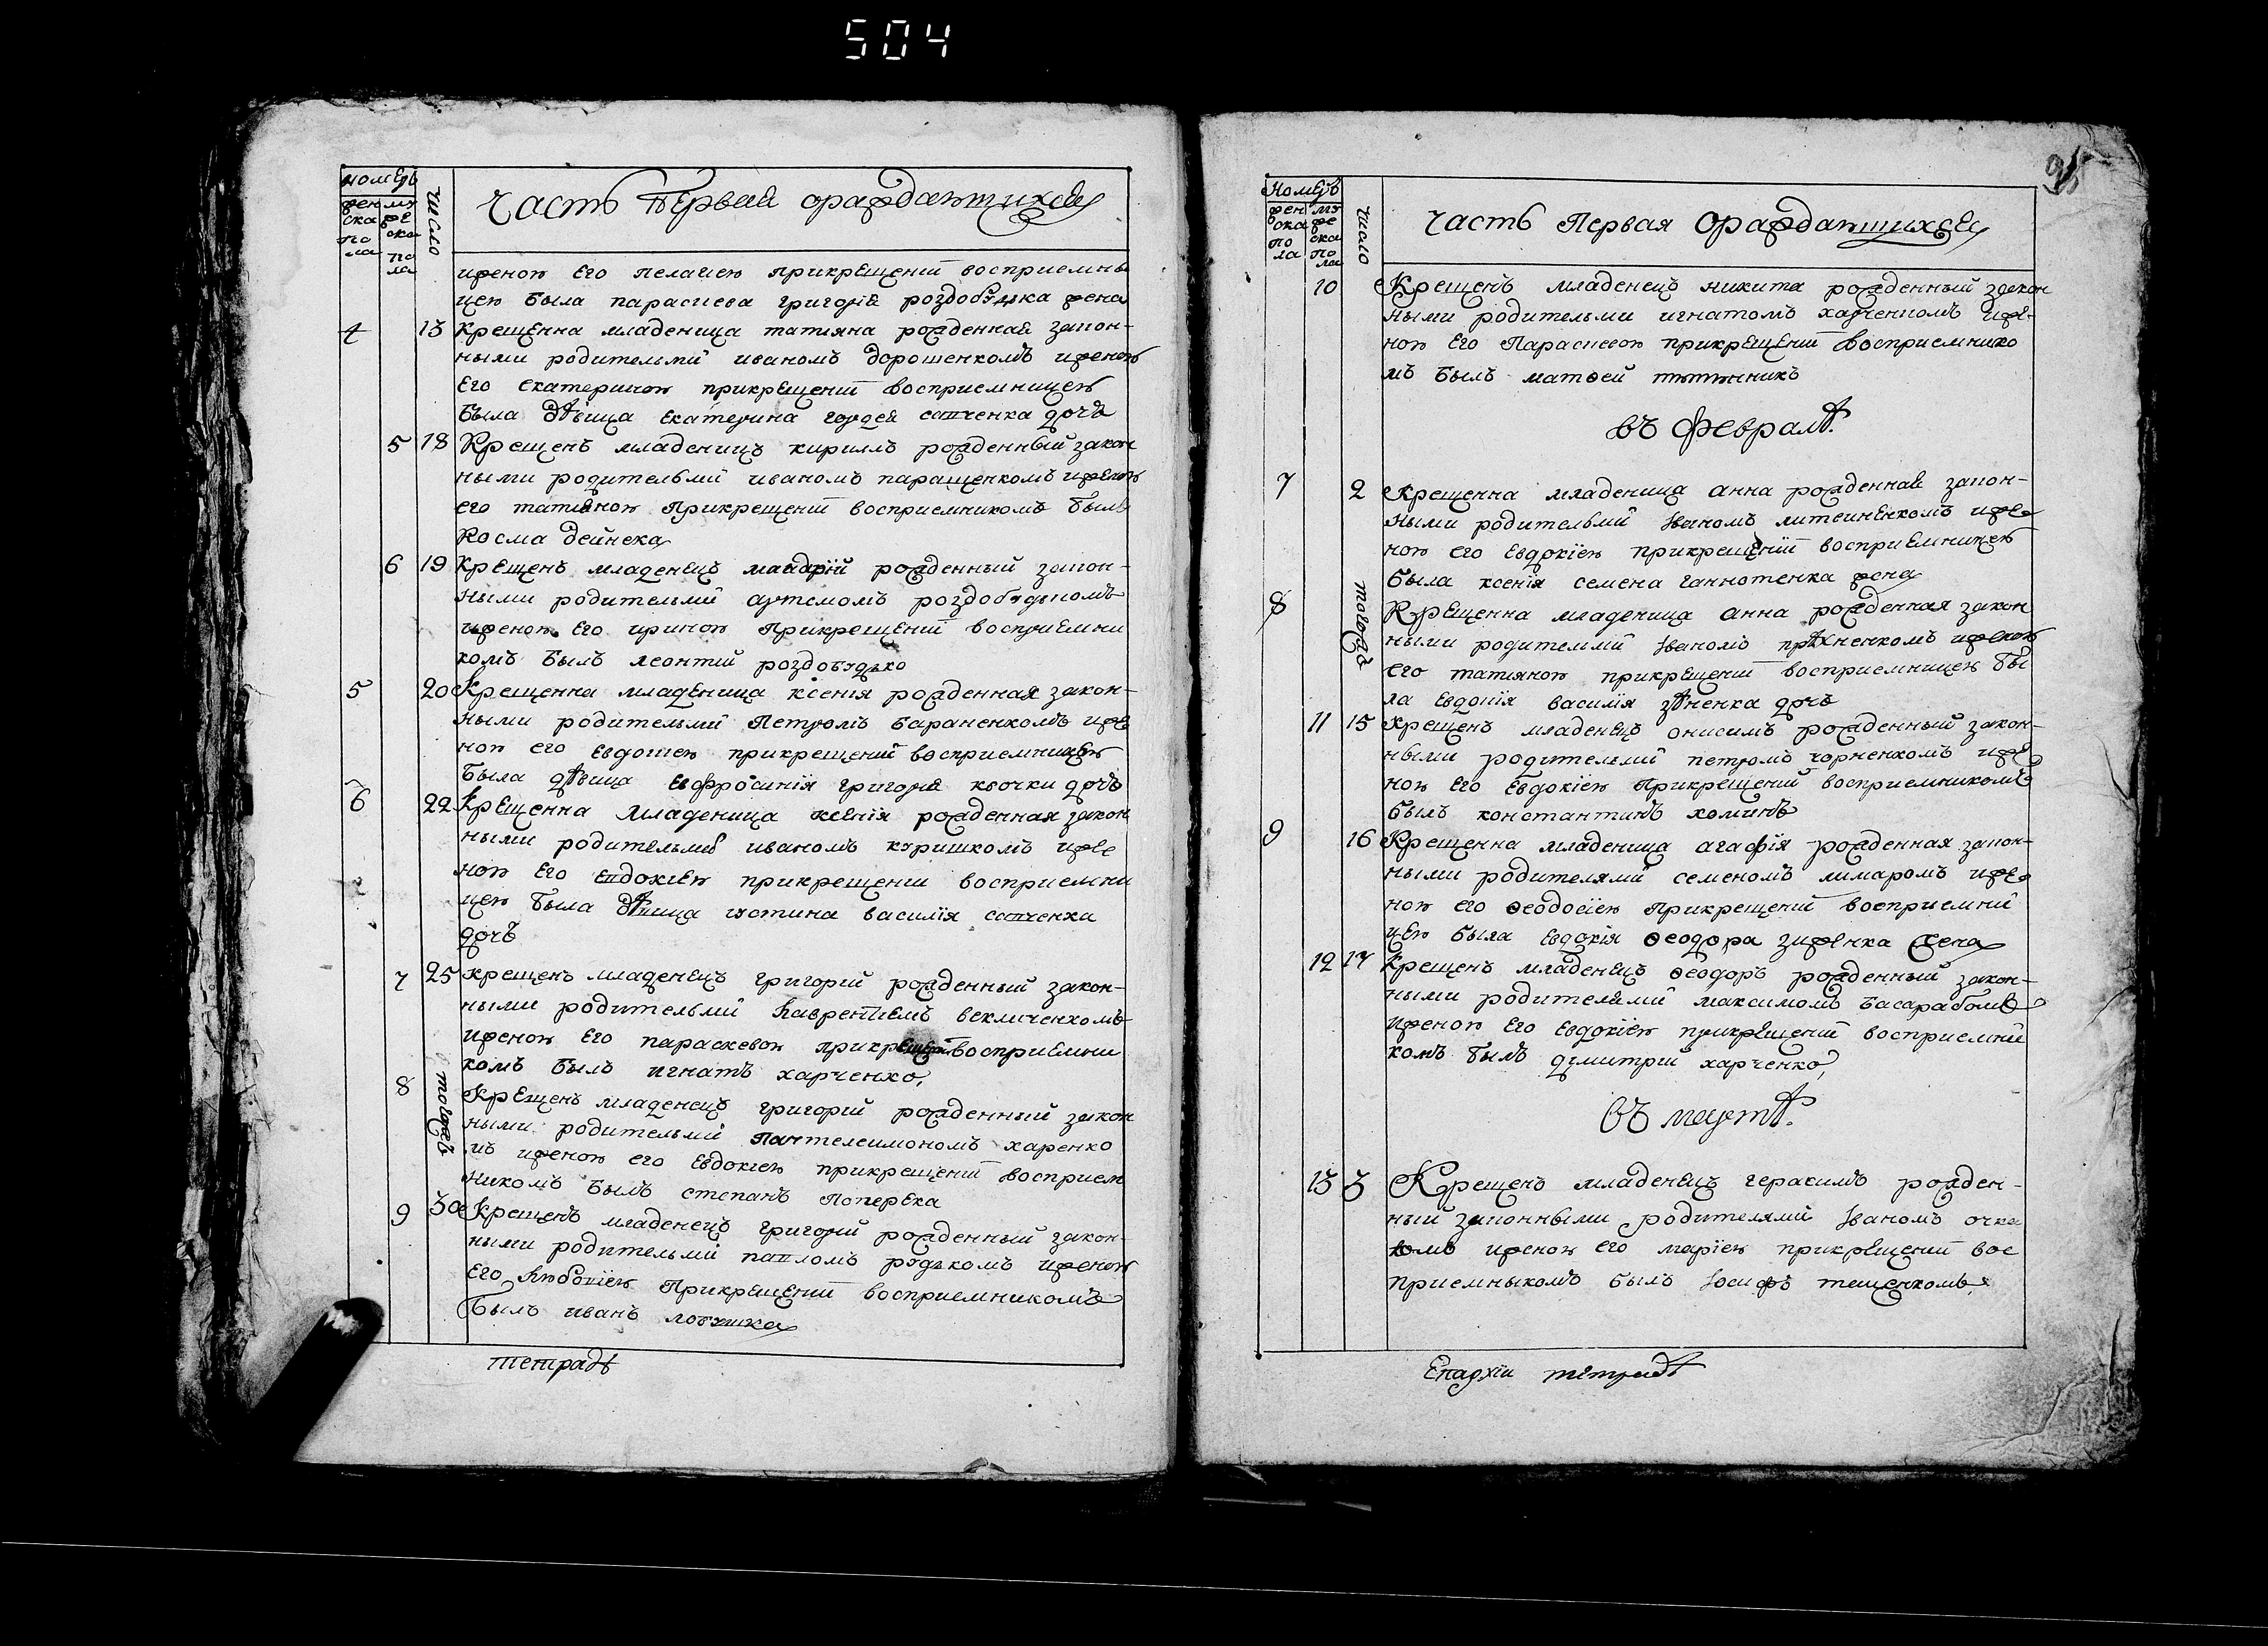 504
номеръ
женска пола
мужеска пола
число
Часть Первая ораждающихся
иженою его пелагиею прикрещенiи восприемни
цею была параскева григорiя роздобудька жена
4 13 Крещенна младеница татияна рожденная закон-
ными родительми иваномъ дорошенкомъ иженою
его екатериною прикрещенiи восприемницею
была дѣвица екатерина гордея сапченка дочъ
5 18 Крещенъ младеницъ кириллъ рожденный закон
ными родительми иваномъ паращенкомъ иженою
его татияною прикрещенiи восприемникомъ былъ
косма дейнека
6 19 Крещенъ младенецъ рожденный закон-
ными родительми артемомъ роздобудькомъ
иженою его ириною прикрещенiи восприемни
комъ былъ леонтий роздобудько
5 20 Крещенна младеница ксения рожденная закон-
ными родительми Петромъ бараненкомъ иже
ною его евдокиею прикрещенiи восприемницею
была дѣвица евфросинiя григорiя квочки дочъ
6 22 Крещенна младеница ксенiя рожденная закон
ными родительми иваномъ куришкомъ иже
ною его евдокиею прикрещении восприемни
цею была дѣвица иустина василiя сапченка
дочъ
7 25 Крещенъ младенецъ григорий рожденный закон-
ными родительми лаврентиемъ векличенкомъ
иженою его параскевою прикрещенiи восприемни
комъ былъ игнатъ харченко,
8 тогожъ Крещенъ младенецъ григорий рожденный закон
ными родительми пантелеимономъ харенко
мъ иженою его евдокиею прикрещенiи восприем
никомъ былъ степанъ поперека
9 30 Крещенъ младенецъ григорий рожденный закон-
ными родительми павломъ рудькомъ иженою
его прикрещенiи восприемникомъ
былъ иванъ
тетрадѣ
95
Номеръ
женска пола
мужеска пола
число
Часть Первая Ораждающихся
10 Крещенъ младенецъ никита рожденный закон
ными родительми игнатомъ харченкомъ иже-
ною его Параскевою прикрещенiи восприемнико
мъ былъ матѳей
въ февралѣ.
7 2 Крещенна младеница анна рожденная закон-
ными родительми Iваномъ литвиненкомъ иже
ною его евдокiею прикрещенiи восприемницею
была ксенiя семена жена
8 тогожъ Крещенна младеница анна рожденная закон
ными родительми Iваномъ иженою
его татияною прикрещенiи восприемницею бы
ла евдокiя василiя зѣненка дочъ
11 15 Крещенъ младенецъ онисимъ рожденный закон-
ными родительми петромъ чорненкомъ иже
ною его евдокiею прикрещенiи восприемникомъ
былъ константинъ хоминъ
9 16 Крещенна младеница агафiя рожденная закон-
ными родителями семеномъ лимаромъ иже
ною его ѳеодосiею прикрещенiи восприемни
цею была евдокiя ѳеодора жена
12 17 Крещенъ младенецъ ѳеодоръ рожденный закон-
ными родителями максимомъ басарабомъ
иженою его евдокiею прикрещенiи восприемни
комъ былъ димитрий харченко,
въ мартѣ.
13 3 Крещенъ младенецъ герасимъ рожден-
ный законными родителями Iваномъ очка
иженою его марiею прикрещенiи вос
приемныкомъ былъ Iосифъ тещенкомъ,
Епархiи тетрадѣ